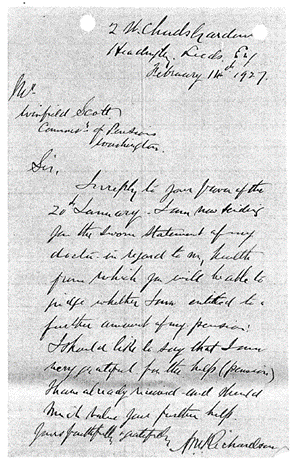 2 St. Chads Gardens
Headingley. Leeds. Eng
February 14th 1927.
Mr.
Winfield Scott
Commr. of Pensions
Washington.
Sir,
In reply to your favor of the
20th January. I am now sending
you the sworn statement of my
doctor in regard to my health
from which you will be able to
judge whether I am entitled to a
further amount of my pension.
I should like to say that I am
very grateful for the help (pension)
I have already received and should
much value your further help.
Yours faithfully & gratefully
Richardson